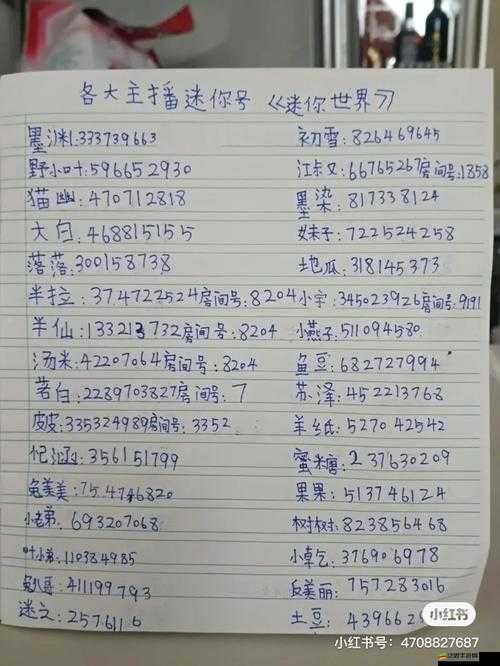 各大主播迷你号《迷你世界》
墨沐:333739663 初雪:826469645
野小叶:596652930 江叔又:66765267房间号:1858
猫幽:470712818 墨染:817338124
大白:468815155 妹子:722524258
落落:300158738 地瓜:318145373
半拉:374722524房间号:8204 小宇:345023926房间号:9191
羊仙:133213732房间号:8204 小燕子:511094580
汤米:42207064房间号:8204 鱼豆:682727994
若白:2289703827房间号:7 苏泽:452213768
皮皮:335324989房间号:3352 羊纸:527042542
忆涵:356151799 蜜糖:237630209
兔美美:754746820 果果:513746124
小老弟:693207068 树树:823856468
叶小弟:110384985 小卓乞:376906978
兔八哥:411199793 反美丽:757283016
迷之:257611 土豆:43966
小红书
小红书号:4708827687